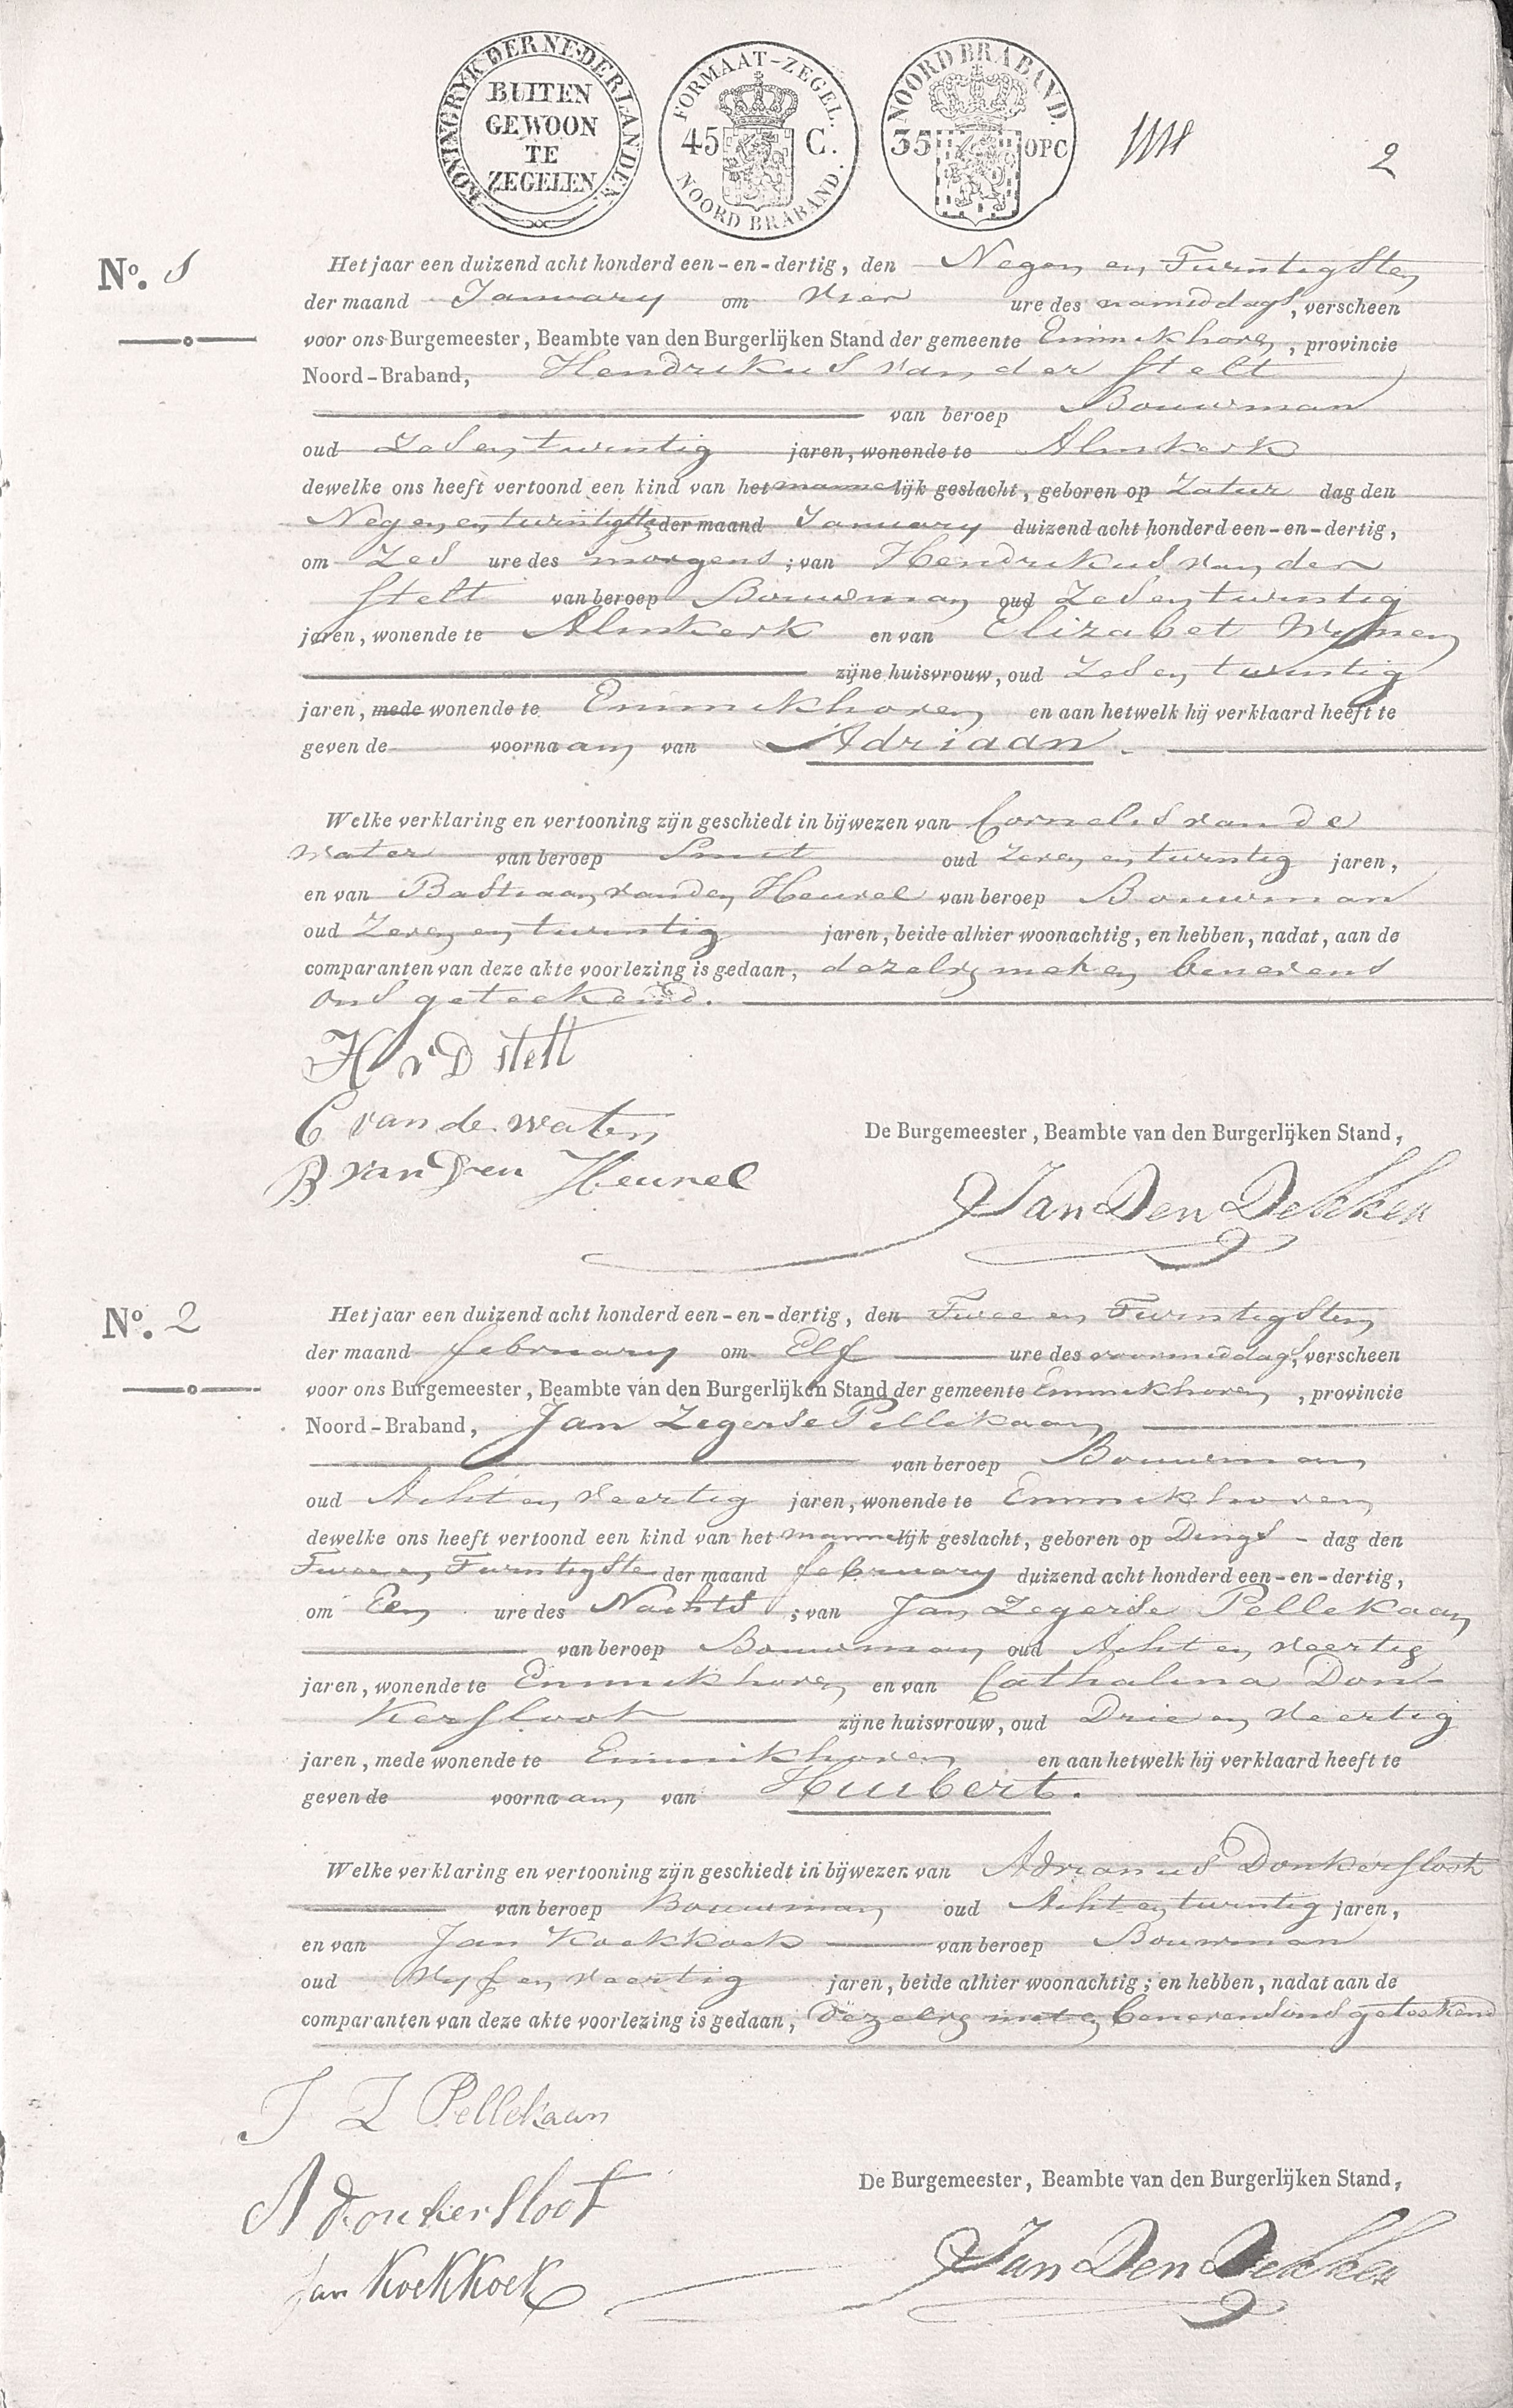 KONINGRYK DER NEDERLANDEN
BUITEN
GEWOON
TE
ZEGELEN
FORMAAT-ZEGEL.
45 C.
NOORD BRABAND.
NOORD BRABAND.
35 OPC
2
No. 1
Het jaar een duizend acht honderd een-en-dertig, den Negen en Twintigsten
der maand January om vier ure des namiddags, verscheen
voor ons Burgemeester, Beambte van den Burgerlijken Stand der gemeente Emmikhoven, provincie
Noord-Braband, Hendrikus van der Stelt
van beroep Bouwman
oud Zes en twintig jaren, wonende te Almkerk
dewelke ons heeft vertoond een kind van het mannelijk geslacht, geboren op Zatur dag den
Negen en twintigste der maand January duizend acht honderd een-en-dertig,
om Zes ure des morgens; van Hendrikus van der
Stelt van beroep Bouwman oud Zes en twintig
jaren, wonende te Almkerk en van Elizabet
zijne huisvrouw, oud Zes en twintig
jaren, mede wonende te Emmikhoven en aan hetwelk hij verklaard heeft te
geven de voornaam van Adriaan.
Welke verklaring en vertooning zijn geschiedt in bijwezen van Cornelis van de
Water van beroep Smit oud Zeven en twintig jaren,
en van Bastiaan van den Heuvel van beroep Bouwman
oud Zeven en twintig jaren, beide alhier woonachtig, en hebben, nadat, aan de
comparanten van deze akte voorlezing is gedaan, dezelve met en benevens
ons geteekend.
H v D stelt
C van de water
B van Den Heuvel
De Burgemeester, Beambte van den Burgerlijken Stand,
Jan Den Dekker
No. 2
Het jaar een duizend acht honderd een-en-dertig, den Twee en Twintigsten
der maand february om Elf ure des voormiddags, verscheen
voor ons Burgemeester, Beambte van den Burgerlijken Stand der gemeente Emmikhoven, provincie
Noord-Braband, Jan Zegerse Pellekaan
van beroep Bouwman
oud Acht en veertig jaren, wonende te Emmikhoven
dewelke ons heeft vertoond een kind van het mannelijk geslacht, geboren op Dings - dag den
Twee en Twintigste der maand february duizend acht honderd een-en-dertig,
om Een ure des Nachts; van Jan Zegerse Pellekaan
van beroep Bouwman oud Acht en veertig
jaren, wonende te Emmikhoven en van Cathalina Don-
kersloot zijne huisvrouw, oud Drie en veertig
jaren, mede wonende te Emmikhoven en aan hetwelk hij verklaard heeft te
geven de voornaam van Huibert.
Welke verklaring en vertooning zijn geschiedt in bijwezen van Adrianus Donkersloot
van beroep Bouwman oud Acht en twintig jaren,
en van Jan Koekkoek van beroep Bouwman
oud Vyf en veertig jaren, beide alhier woonachtig; en hebben, nadat aan de
comparanten van deze akte voorlezing is gedaan, dezelve met en benevens ons geteekend
J Z Pellekaan
A donkersloot
Jan Koekkoek
De Burgemeester, Beambte van den Burgerlijken Stand,
Jan Den Dekker